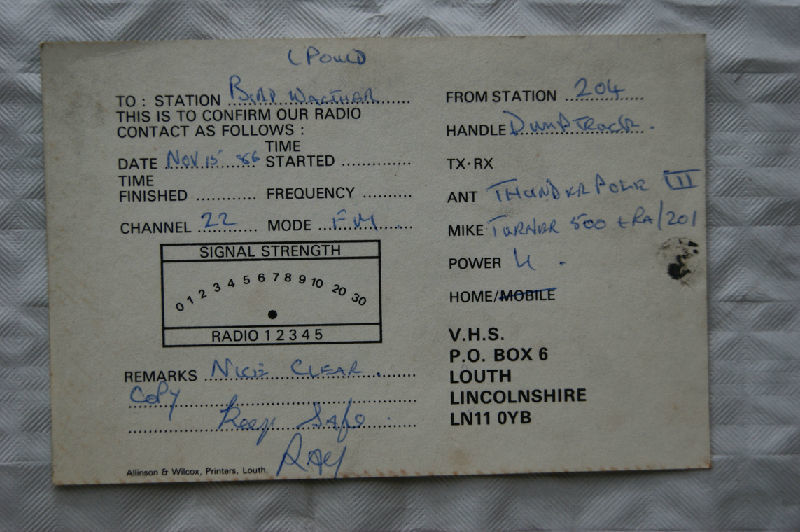 TO : STATION
FROM STATION 204
THIS IS TO CONFIRM OUR RADIO
CONTACT AS FOLLOWS :
HANDLE DUMPTRUCK.
DATE NOV 15 '86 TIME STARTED
TX·RX
TIME FINISHED FREQUENCY
ANT THUNDERPOLE III
CHANNEL 22 MODE FM
MIKE TURNER 500 + RA/201
POWER 4.
HOME/MOBILE
SIGNAL STRENGTH
0 1 2 3 4 5 6 7 8 9 10 20 30
RADIO 1 2 3 4 5
REMARKS NICE CLEAR.
COPY
Keep Safe
RAY
V.H.S.
P.O. BOX 6
LOUTH
LINCOLNSHIRE
LN11 0YB
Allinson & Wilcox, Printers, Louth.